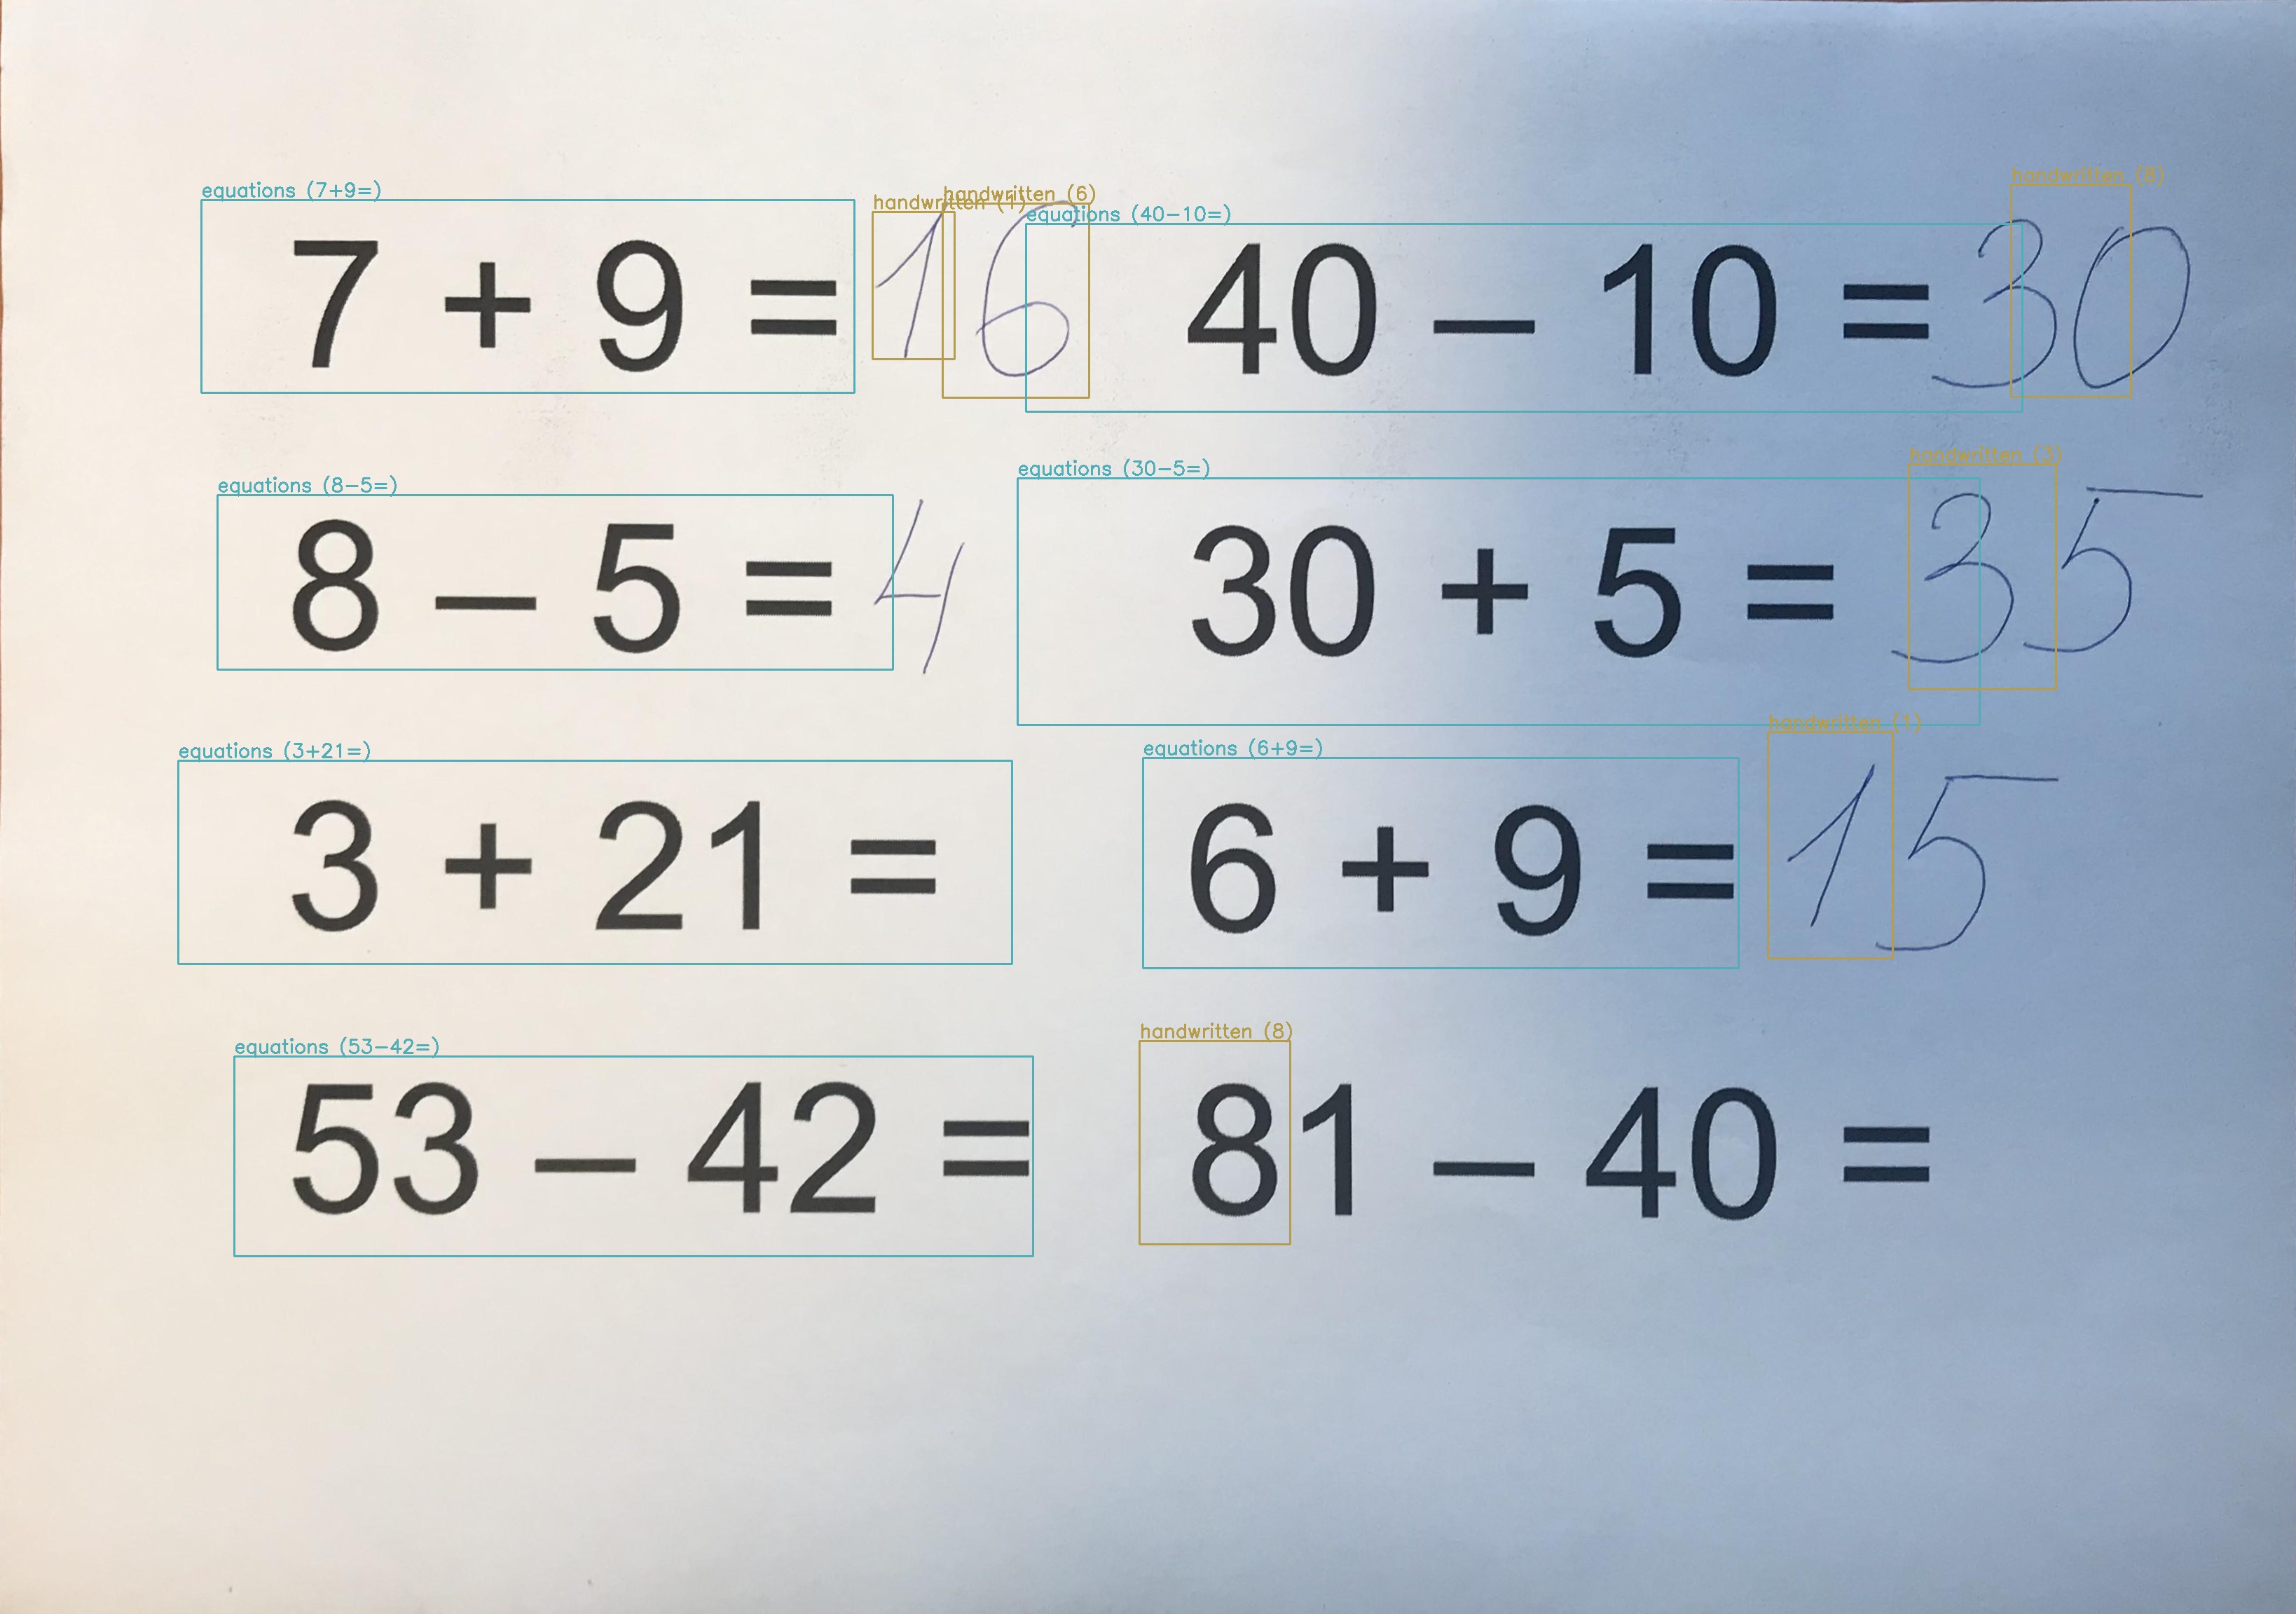 equations (7+9=) handwritten (1) handwritten (6) equations (40-10=) handwritten (8)
7 + 9 = 16 40 – 10 = 30
equations (8-5=) equations (30-5=) handwritten (3)
8 – 5 = 4 30 + 5 = 35
equations (3+21=) equations (6+9=) handwritten (1)
3 + 21 = 6 + 9 = 15
equations (53-42=) handwritten (8)
53 – 42 = 81 – 40 =